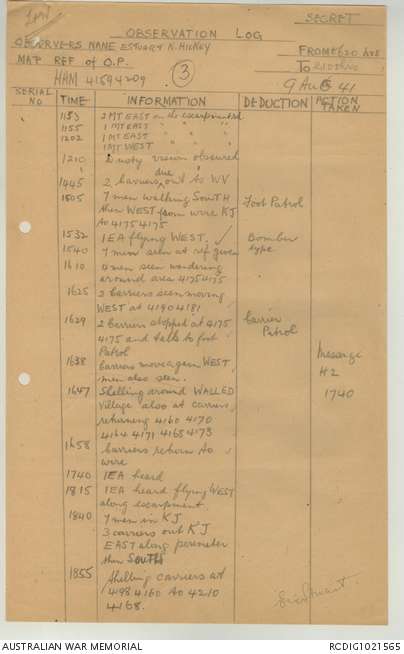 SECRET
OBSERVATION LOG
OBSERVERS NAME ESTUART K. HICKEY
FROM 0630 hrs
MAP REF of O.P. To 2100 hrs
HAM 41594209 (3) 9 AUG 41
SERIAL NO TIME INFORMATION DEDUCTION ACTION TAKEN
1153 2 MT EAST on the escarpment rd
1155 1 MT EAST " " "
1202 1 MT EAST " " "
1 MT WEST " "
1210 Dusty vision obscured
1445 2 barriers due out to WV
1505 7 men walking SOUTH Foot Patrol
then WEST from wire KJ
to 4175 4175
1532 1 EA flying WEST. ✓ Bomber
1540 7 men seen at ref given type
1610 4 men seen wandering
around area 4175 4175
1625 2 barriers seen moving
WEST at 4190 4181
1629 2 barriers stopped at 4175 Carrier
4175 and talks to foot Patrol
Patrol
1638 barriers move again WEST, Message
men also seen. H2
1647 Shelling around WALLED 1740
Village also at carriers
returning 4160 4170
4164 4171 4168 4173
1658 barriers return to
wire
1740 1EA heard
1815 1EA heard flying WEST
along escarpment
1840 7 men in KJ
3 carriers out KJ
EAST along perimeter
then SOUTH
1855 Shelling carriers at
4198 4160 to 4210
4168.